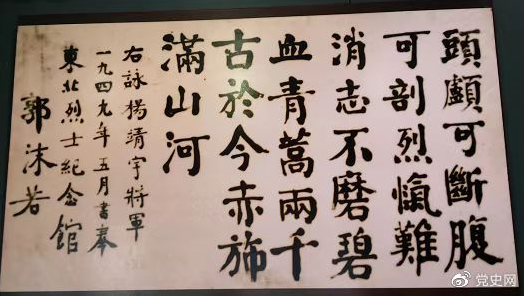 頭顱可斷腹
可剖烈愾難
消志不磨碧
血青蒿兩千
古於今赤旆
滿山河
右詠楊靖宇將軍
一九四九年五月書奉
東北烈士紀念館
郭沫若
党史网